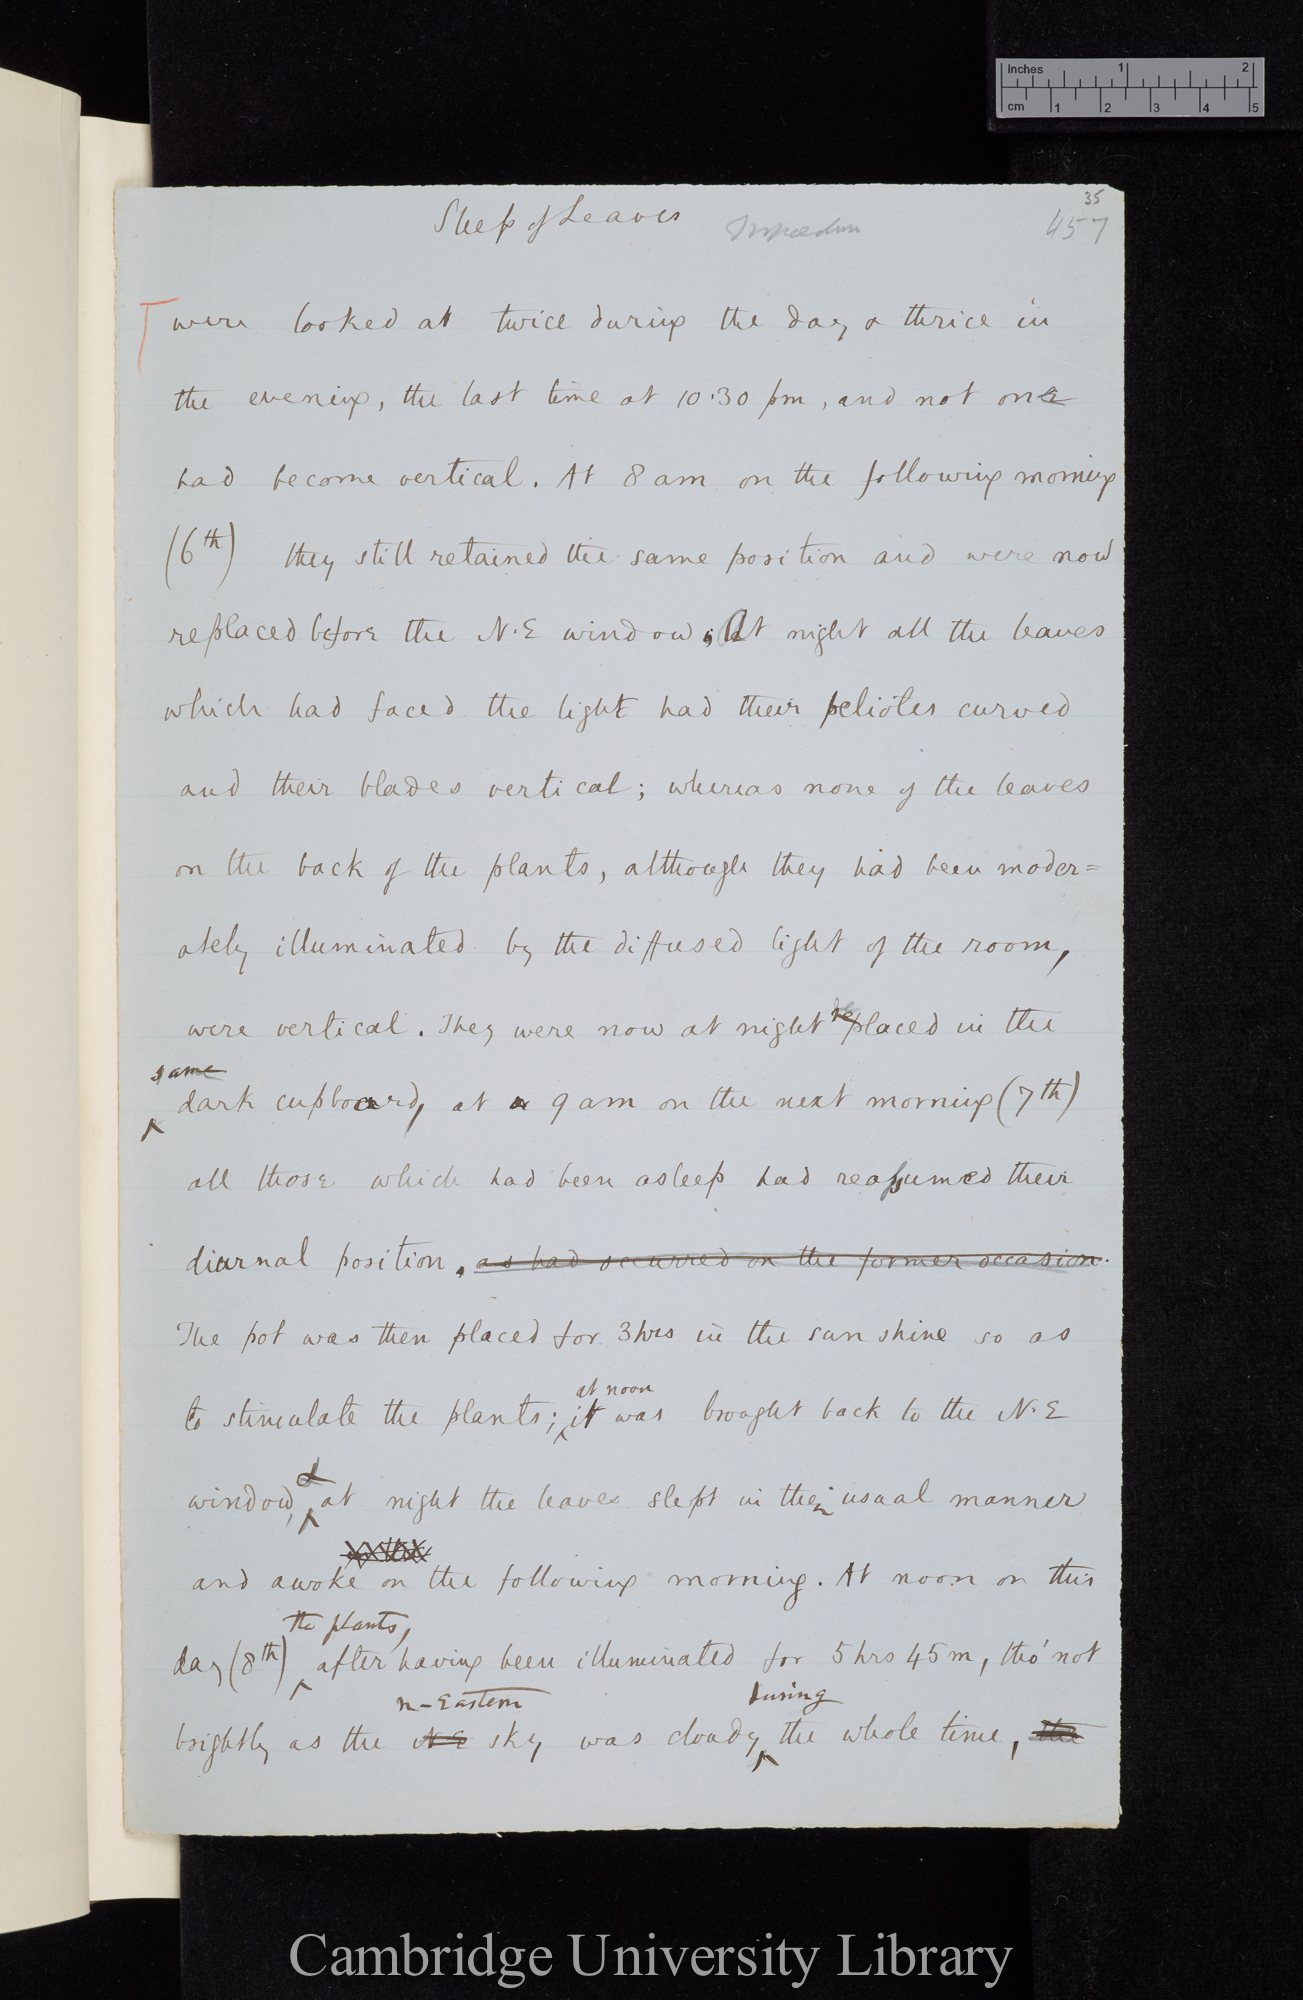 inches 1 2
cm 1 2 3 4 5
35
Sleep of Leaves Tropæolum 457
were looked at twice during the day & thrice in
the evening, the last time at 10·30 pm, and not one
had become vertical. At 8 am on the following morning
(6th) they still retained the same position and were now
replaced before the N.E window. At night all the leaves
which had faced the light had their petioles curved
and their blades vertical; whereas none of the leaves
on the back of the plants, although they had been moder=
ately illuminated by the diffused light of the room,
were vertical. They were now at night replaced in the
same
dark cupboard, at 9 am on the next morning (7th)
all those which had been asleep had reassumed their
diurnal position, as had occurred on the former occasion.
The pot was then placed for 3 hrs in the sun shine so as
at noon
to stimulate the plants; it was brought back to the N.E
&
window, at night the leaves slept in their usual manner
and awoke on the following morning. At noon on this
the plants,
day (8th) after having been illuminated for 5 hrs 45 m, tho' not
n-Eastern during
brightly as the N E sky was cloudy the whole time, the
Cambridge University Library